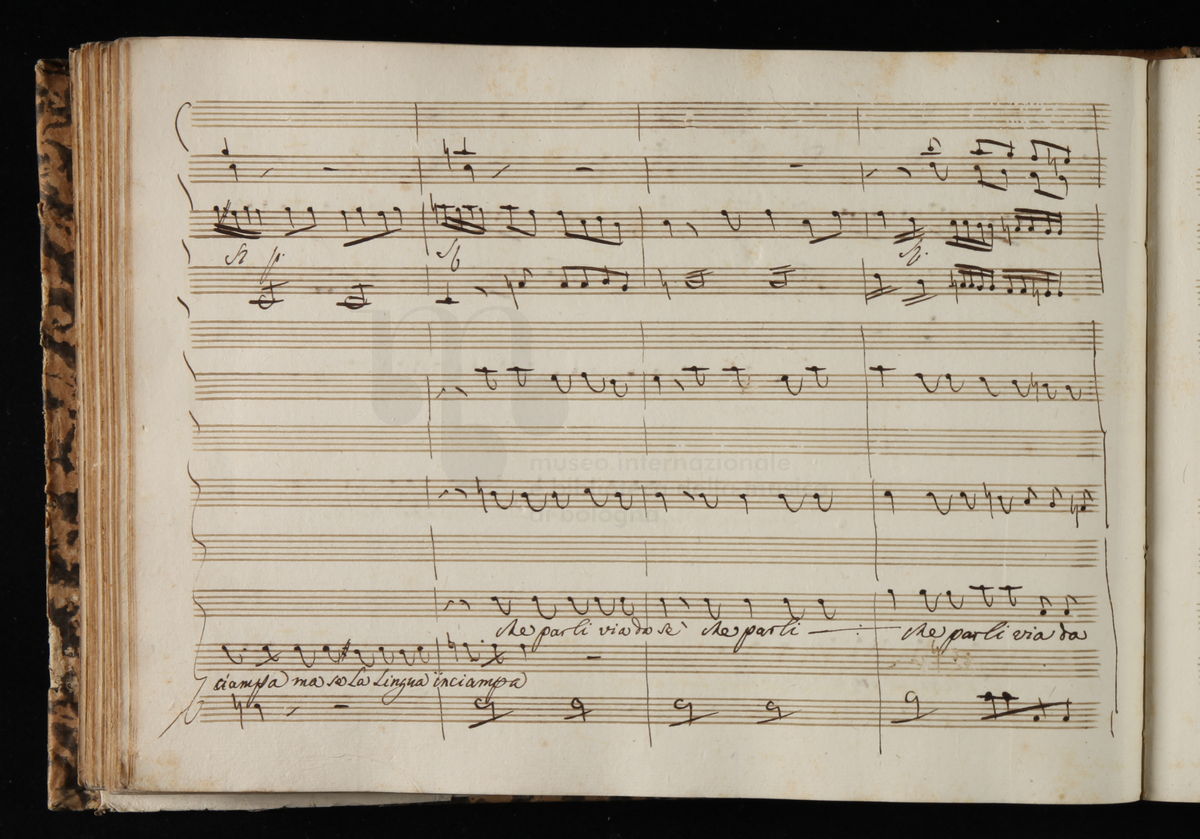 museo internazionale
e biblioteca della musica
di bologna
che parli via da sè che parli che parli via da
ciampa ma se la lingua inciampa